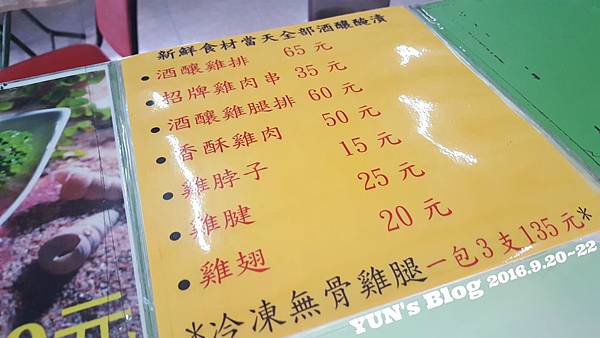 新鮮食材當天全部酒釀醃漬
•酒釀雞排 65元
•招牌雞肉串 35元
•酒釀雞腿排 60元
•香酥雞肉 50元
•雞脖子 15元
•雞腱 25元
•雞翅 20元
*冷凍無骨雞腿一包3支135元*
元
YUN's Blog 2016.9.20~22